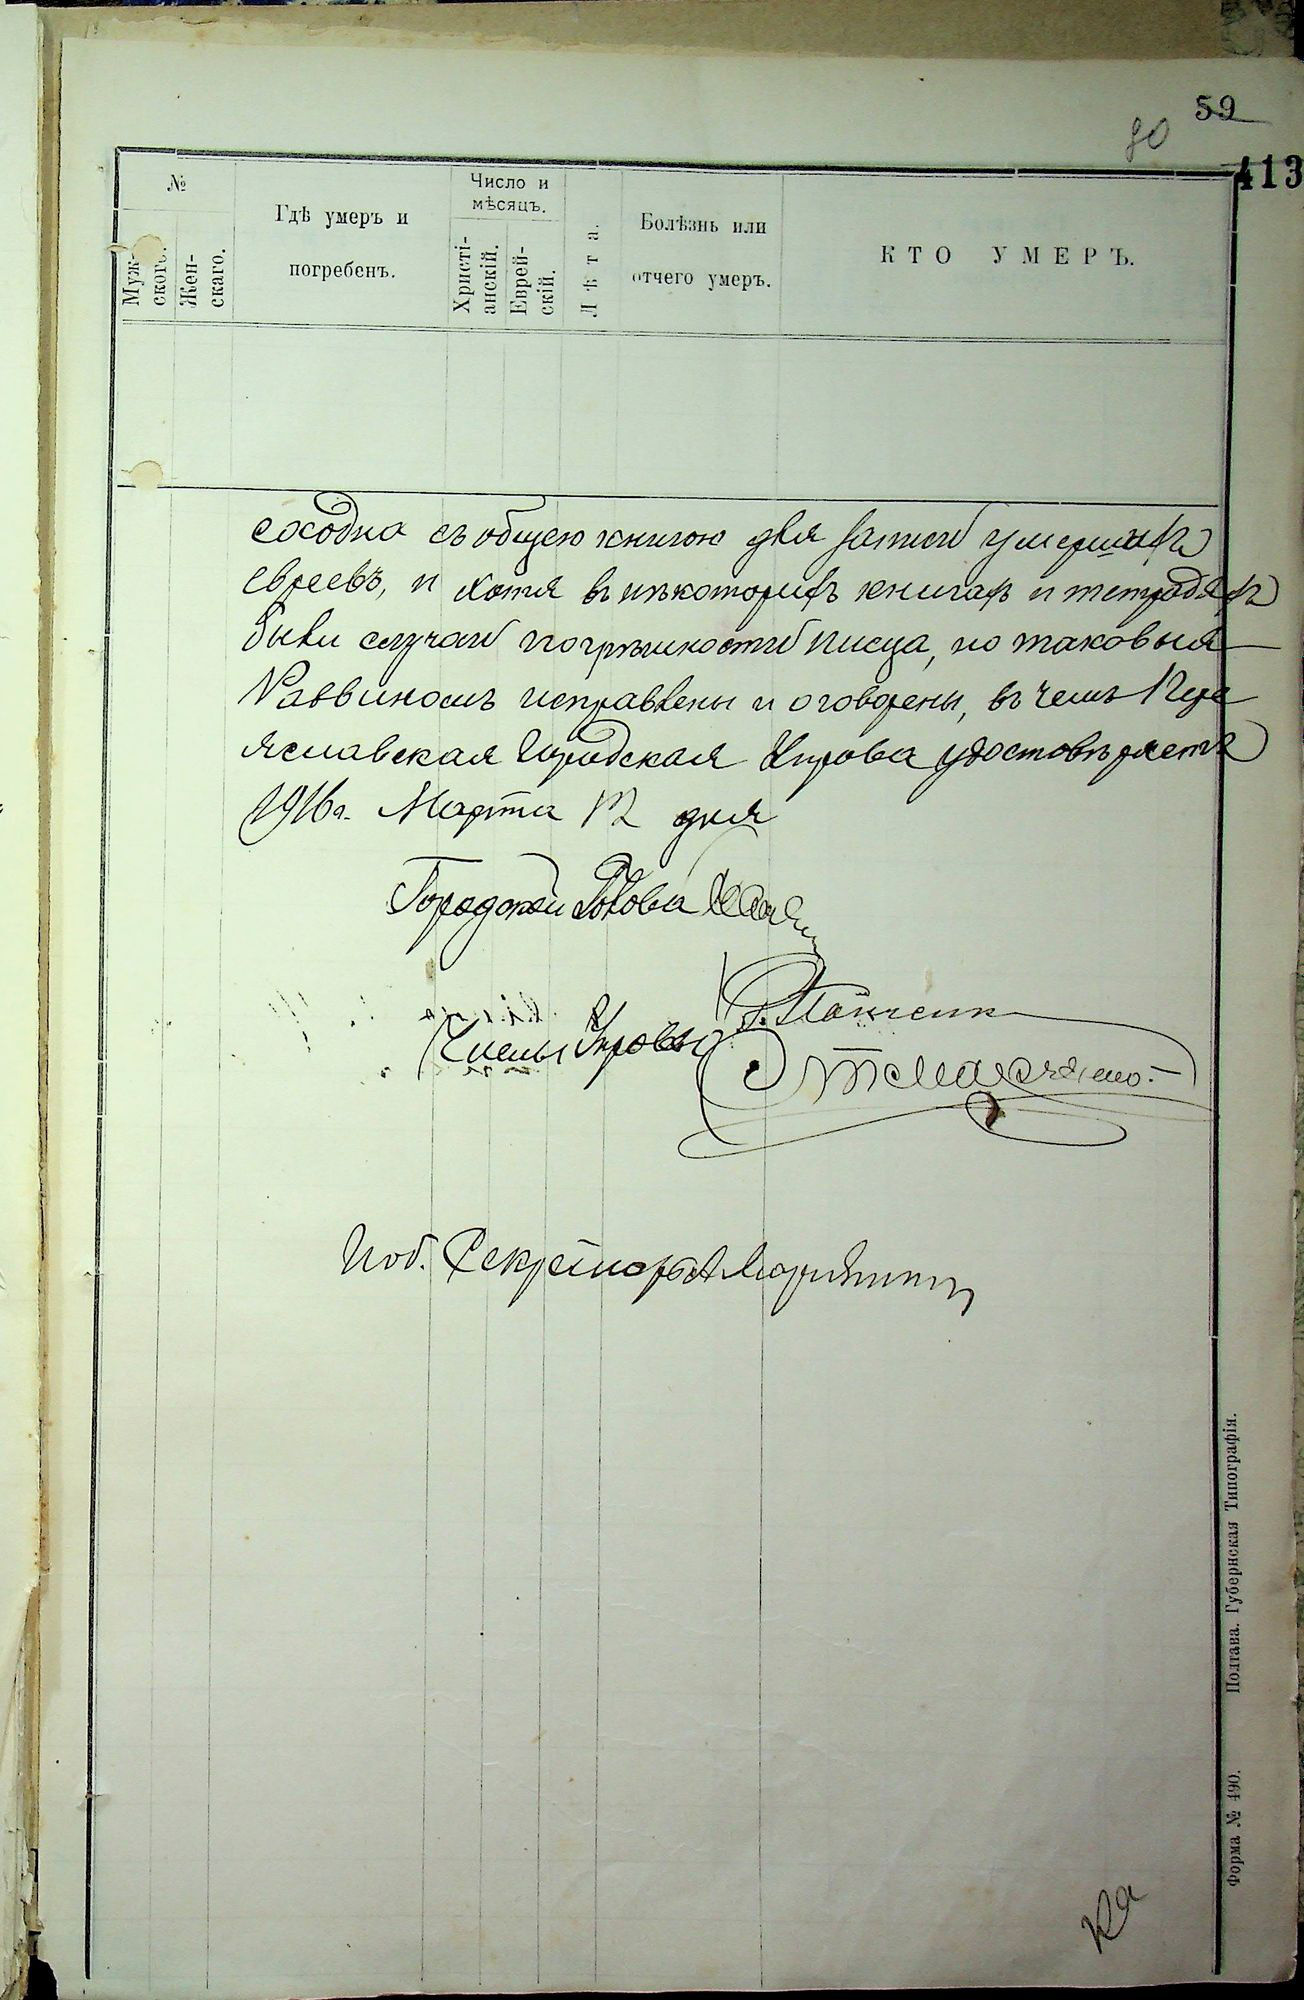 59
80
413
№
Муж-
ского.
Жен-
скаго.
Гдѣ умеръ и
погребенъ.
Число и
мѣсяцъ.
Христі-
анскій.
Еврей-
скій.
Лѣта.
Болѣзнь или
отчего умеръ.
КТО УМЕРЪ.
сходна съ общею книгою для записи умершихъ
евреевъ, и хотя въ нѣкоторихъ книгахъ и тетрадяхъ
были случаи погрѣшности писца, но таковыя
Раввиномъ исправлены и оговорены, въ чемъ Пере
яславская Городская Управа удостовѣряетъ
1916 г. Марта 12 дня
Городской Голова
Члены Управы
И об. Секретаря
Форма № 490. Полтава. Губернская Типографія.